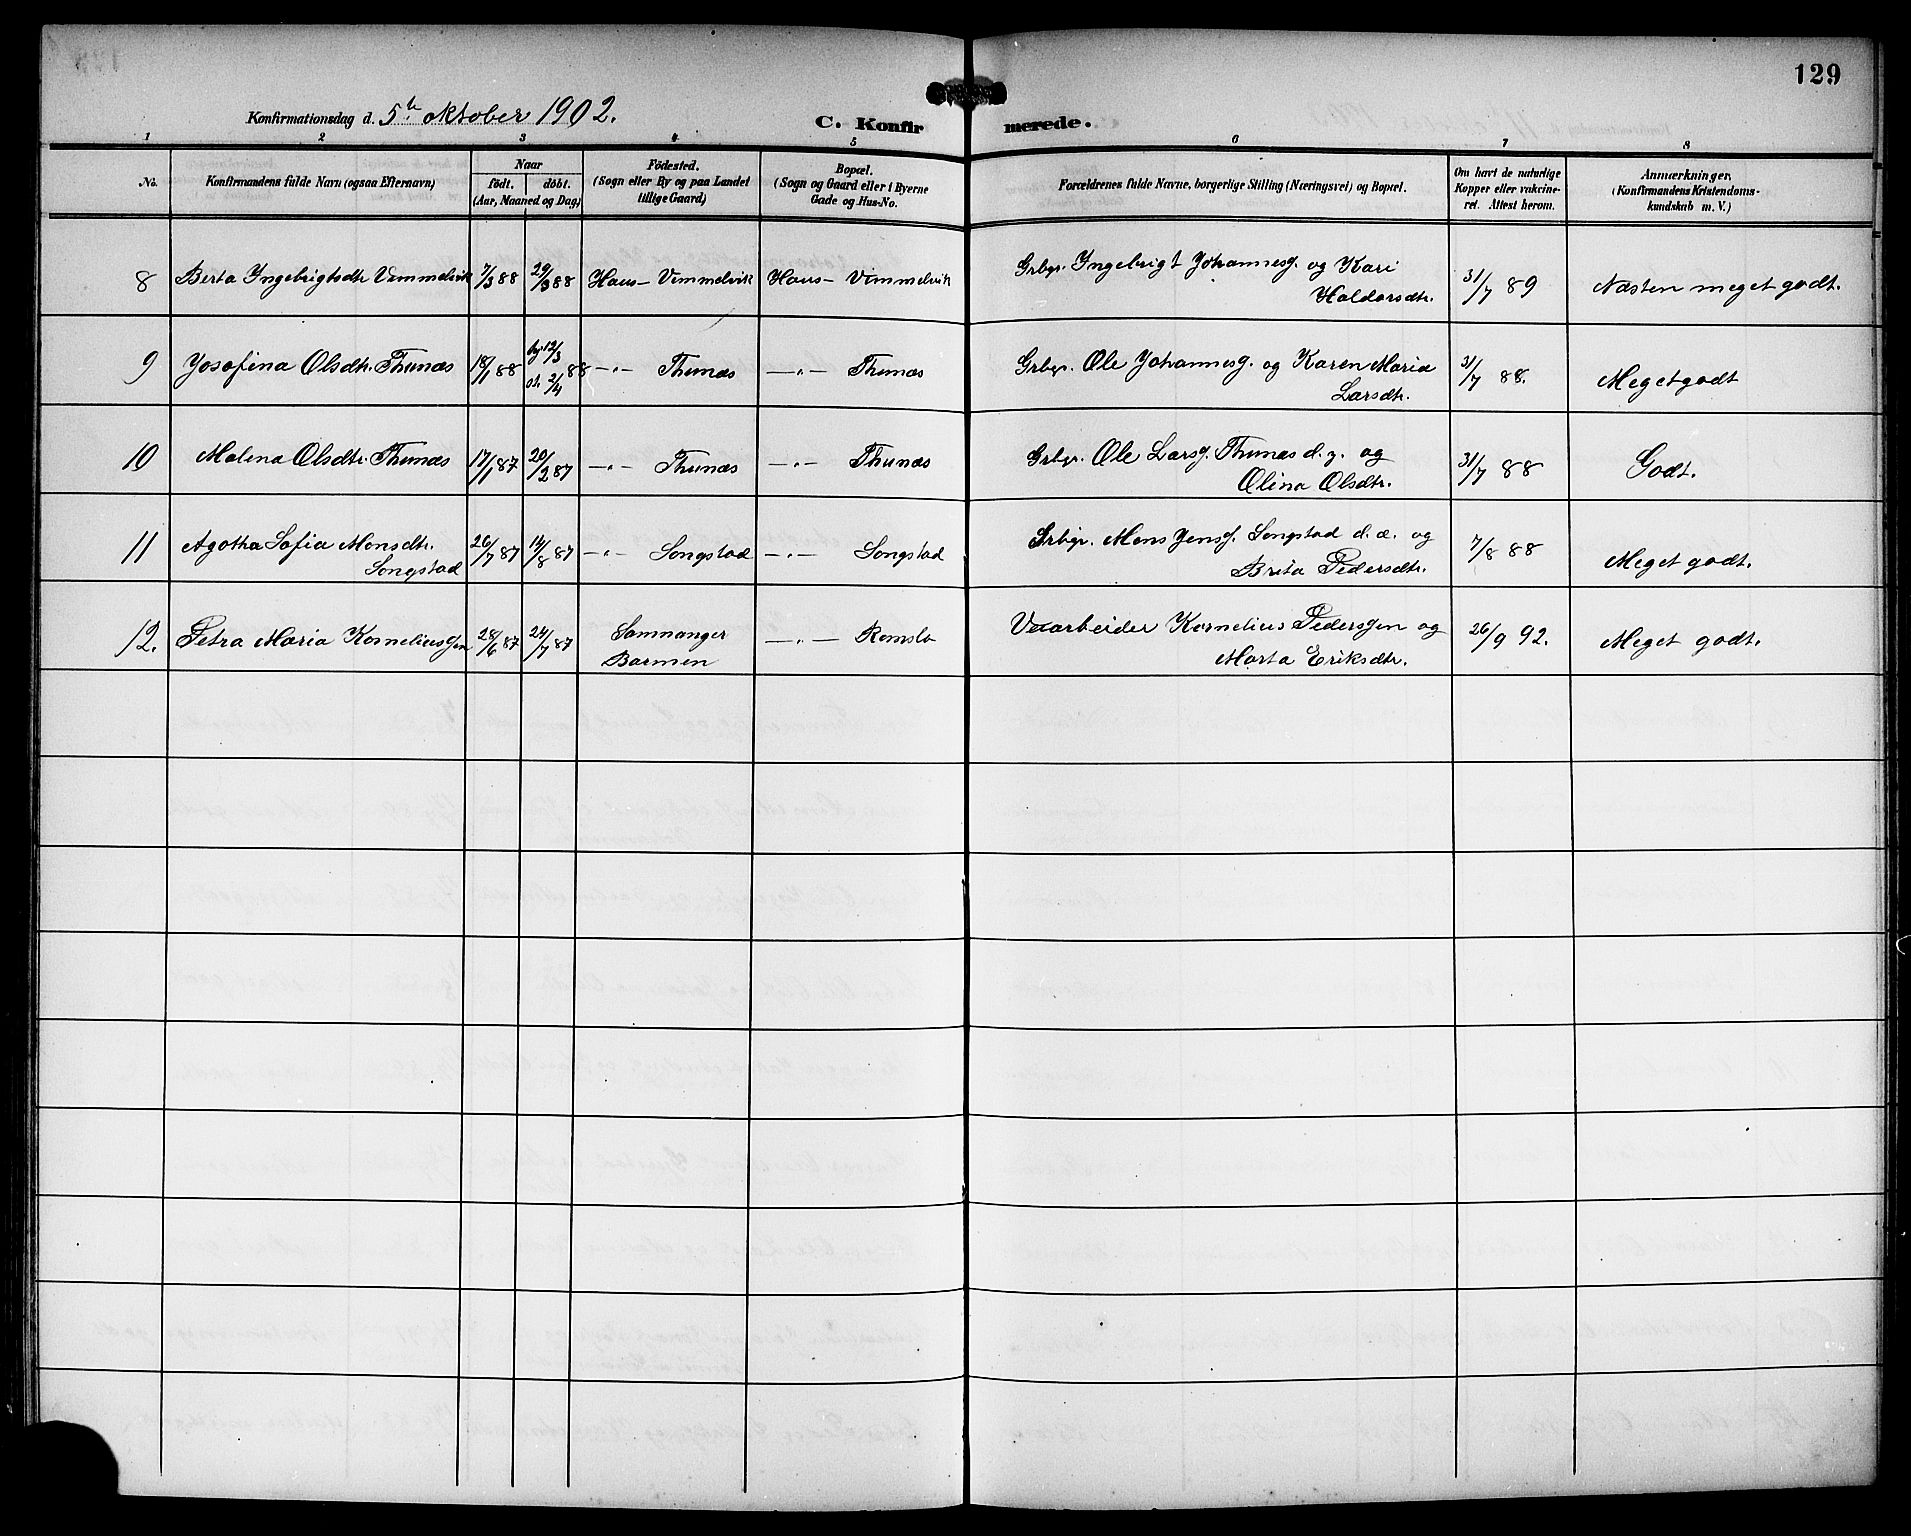 129
Konfirmationsdag d. 5te oktober 1902.
C. Konfirmerede.
1 2 3 4 5 6 7 8
No.
Konfirmandens fulde Navn (ogsaa Efternavn)
Naar
födt. döbt.
(Aar, Maaned og Dag)
Födested.
(Sogn eller By og paa Landet
tillige Gaard)
Bopæl.
(Sogn og Gaard eller i Byerne
Gade og Hus-No.
Forældrenes fulde Navne, borgerlige Stilling (Næringsvei) og Bopæl.
Om havt de naturlige
Kopper eller vakcine-
ret. Attest herom.
Anmærkninger,
(Konfirmandens Kristendoms-
kundskab m. V.)
8 Berta Ingebrigtsdtr Vimmelvik 7/3 88 29/3 88 Haus — Vimmelvik Haus — Vimmelvik Grbgr. Ingebrigt Johannesʃ. og Kari 31/7 89 Næsten meget godt.
Haldorsdtr.
9 Josefina Olsdtr. Thunæs 18/1 88 hj 12/3 88 —„— Thunæs —„— Thunæs Grbgr. Ole Johannesʃ. og Karen Maria 31/7 88. Meget godt
st. 2/4 Larsdtr.
10 Malena Olsdtr. Thunæs 17/1 87 20/2 87 —„— Thunæs —„— Thunæs Grbgr. Ole Larsʃ. Thunæs d. y. og 31/7 88 Godt.
Olina Olsdtr.
11 Agotha Sofia Monsdtr. 26/7 87 14/8 87 —„— Songstad —„— Songstad Grbgr. Mons Jensʃ. Songstad d. æ. og 7/8 88 Meget godt.
Songstad Brita Pedersdtr.
12. Petra Maria Korneliusʃen 28/6 87 24/7 87 Samnanger —„— Romslo Vearbeider Kornelius Pedersʃen og 26/9 92. Meget godt.
Barmen Marta Eriksdtr.